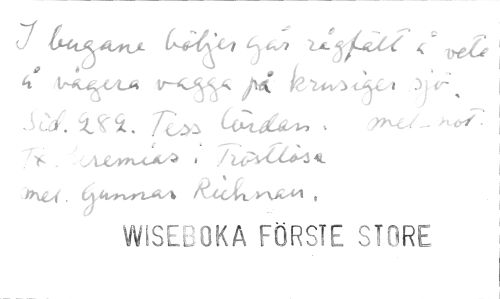 I bugane böljer går rågfält å vete
å vågera vagga på krusiger sjö.
Sid. 282. Tess lördan. mel. not.
Tx. Jeremias i Tröstlösa
mel. Gunnar Richnau.
WISEBOKA FÖRSTE STORE